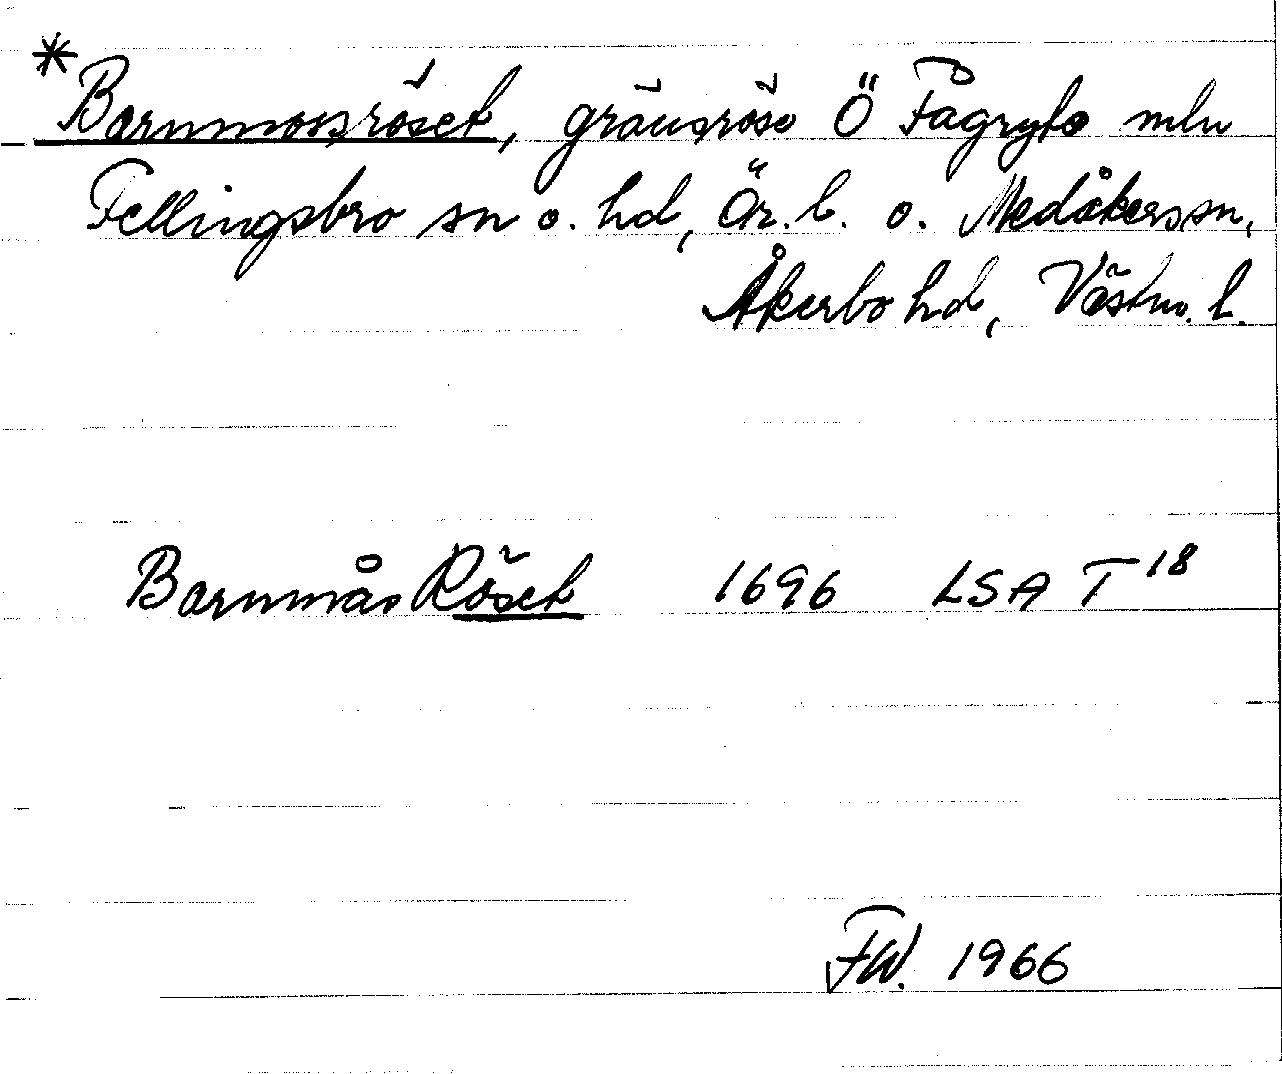 * Barnmossröset, gränsröse Ö Fagryta mln
Fellingsbro sn o. hd, Ör. l. o. Medåkers sn,
Åkerbo hd, Västm. l.
Barnmås Röset 1696 LSA T18
FW. 1966